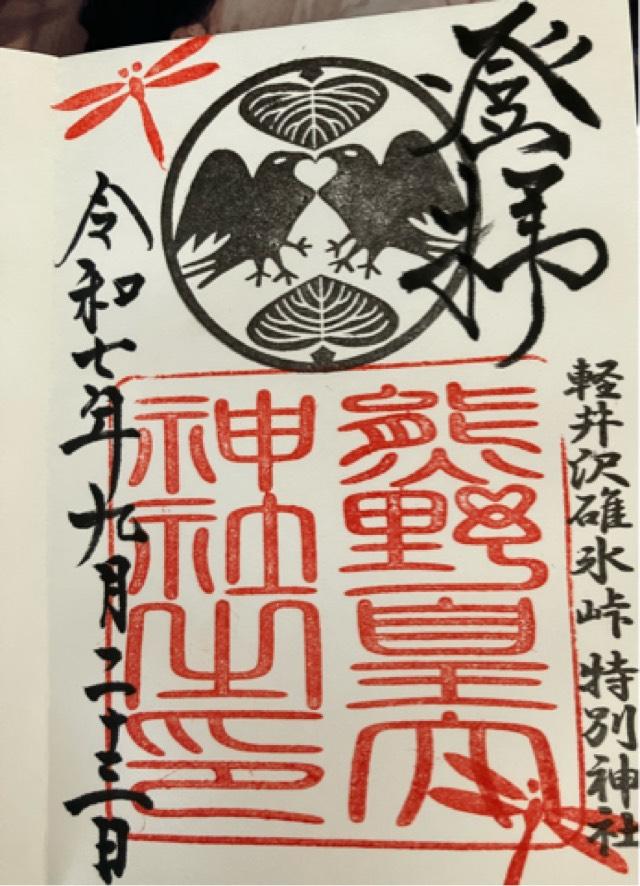 登拝
軽井沢碓氷峠 特別神社
熊野皇大
神社之印
令和七年九月二十三日